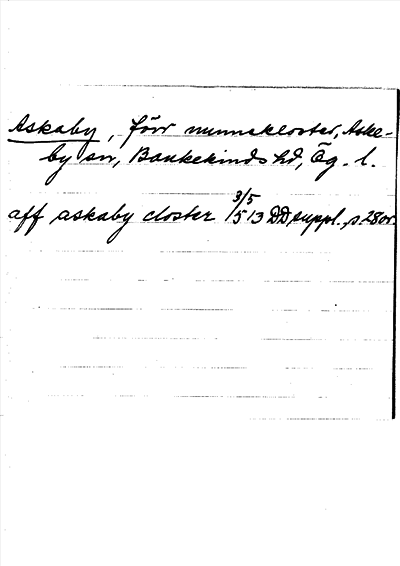 Askaby, förr nunnekloster, Aske-
by sn, Bankekinds hd, Ög. l.
aff askaby closter 3/5 513 DD suppl., s. 28 or.